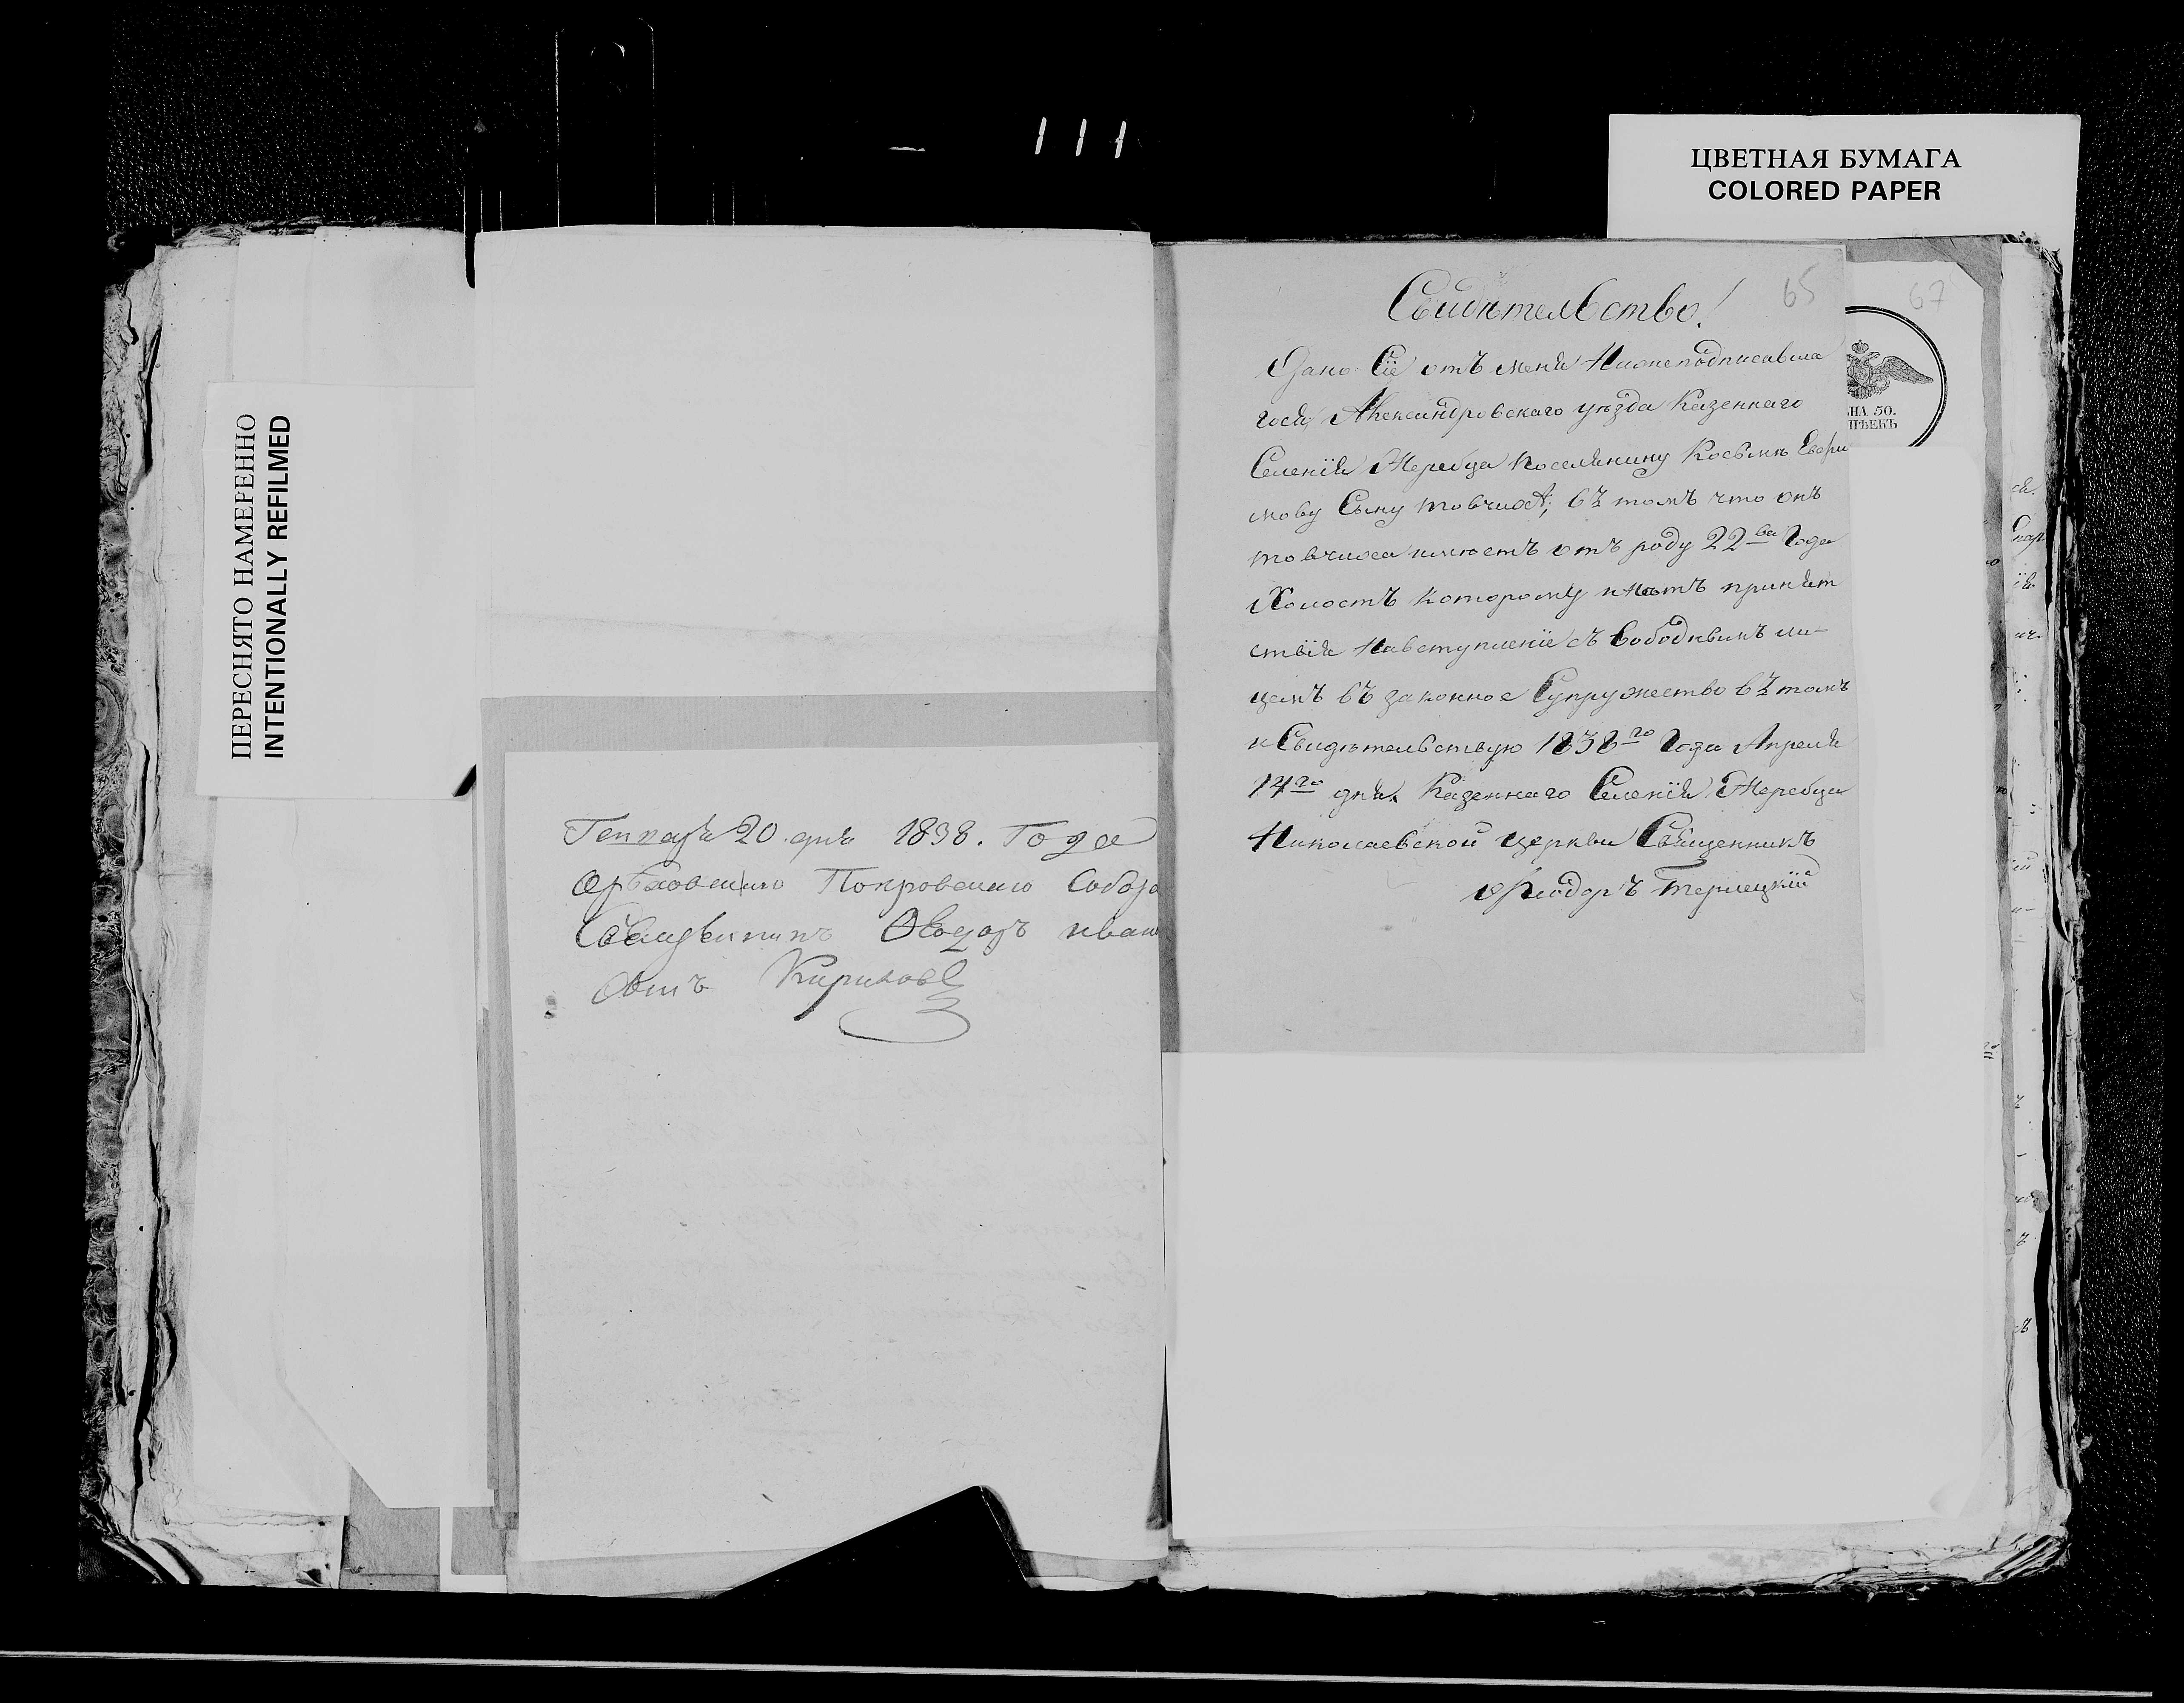 111
ЦВЕТНАЯ БУМАГА
COLORED PAPER
ПЕРЕСНЯТО НАМЕРЕННО
INTENTIONALLY REFILMED
20 дня 1838. Года
Ореховскаго Покровскаго Собора
иван
Кирилов
65
67
Свидѣтельство!
Дано Сїе отъ меня Нижеподписавша
гося, Александровскаго уѣзда Казеннаго
Селенїя Жеребца поселянину Косьмѣ Евфи
мову Сыну товчихѣ; въ томъ что онъ
товчиха имѣетъ отъ роду 22ва Года
Холостъ которому нѣтъ препят
ствїя навступленїе съ Свободнымъ ли-
цемъ въ законное Супружество въ томъ
и Свидѣтельствую 1838го Года Апреля
14го дня. Казеннаго Селенїя Жеребца
Николаевской церкви Священникъ
Феодоръ Терлецкїй
НА 50.